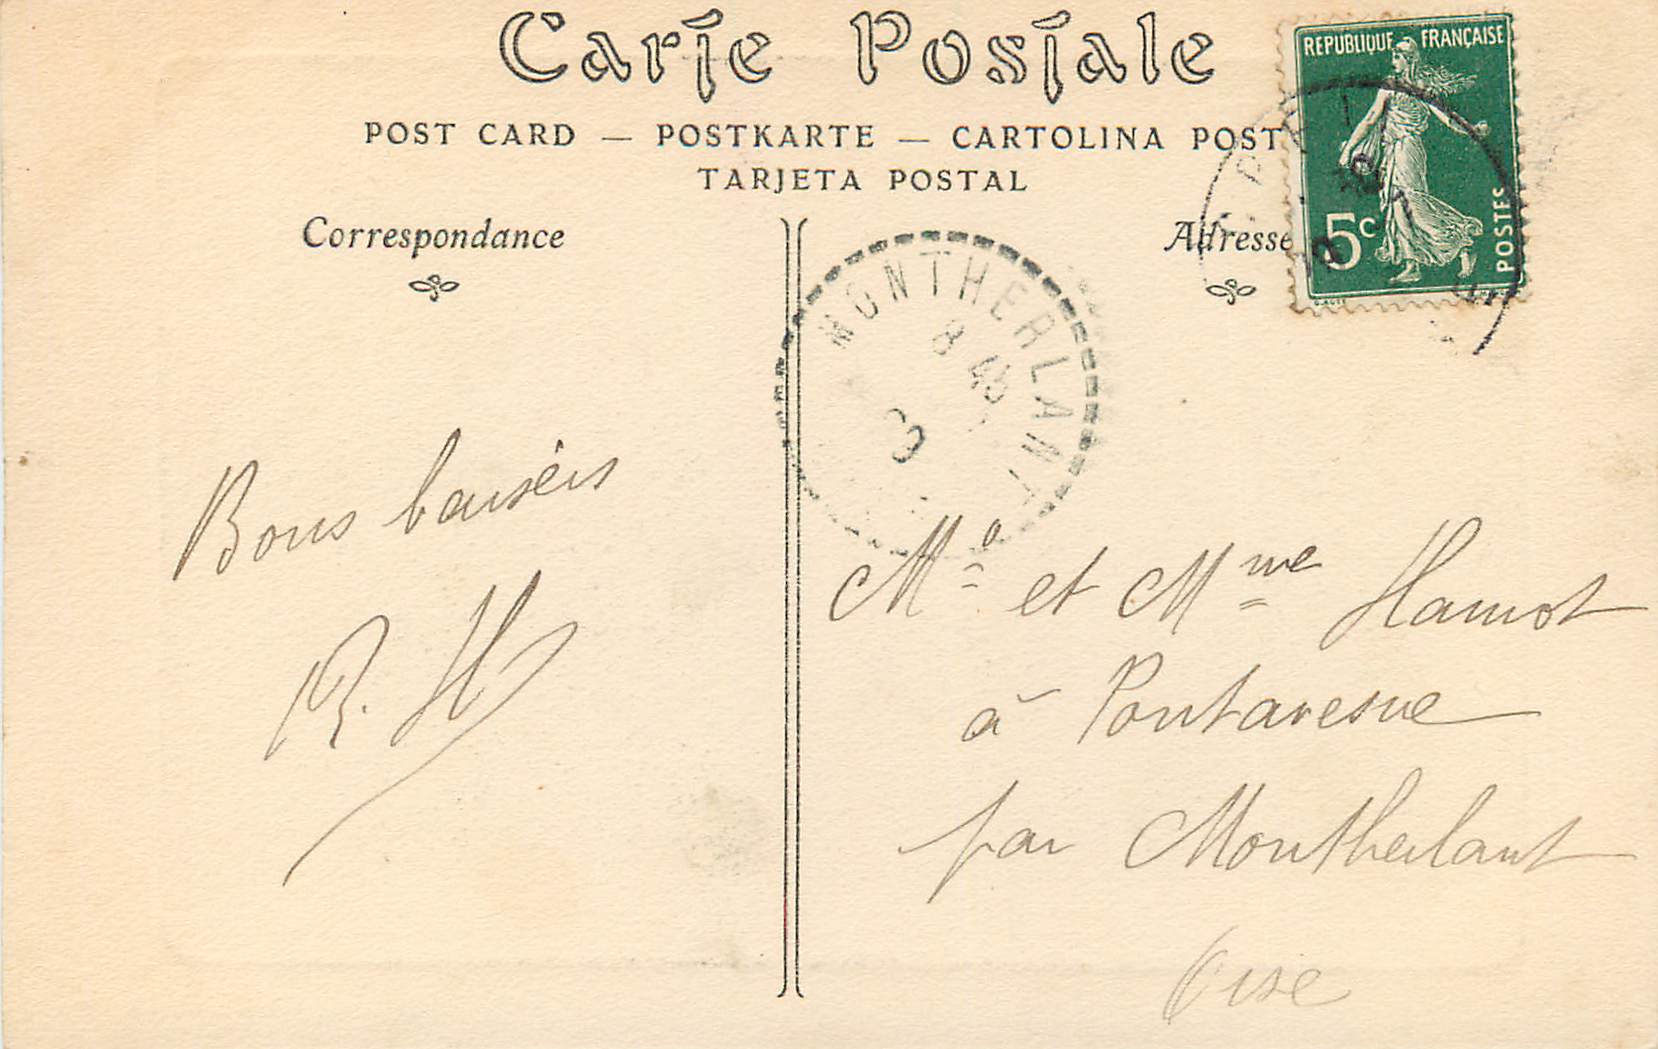 Carte Postale
POST CARD — POSTKARTE — CARTOLINA POST
TARJETA POSTAL
Correspondance
Adresse
REPUBLIQUE FRANÇAISE
5c
POSTES
MONTHERLANT
8 45
3
Bons baisers
R. H
Mr et Mme Hamot
à Pontavesne
par Montherlant
Oise